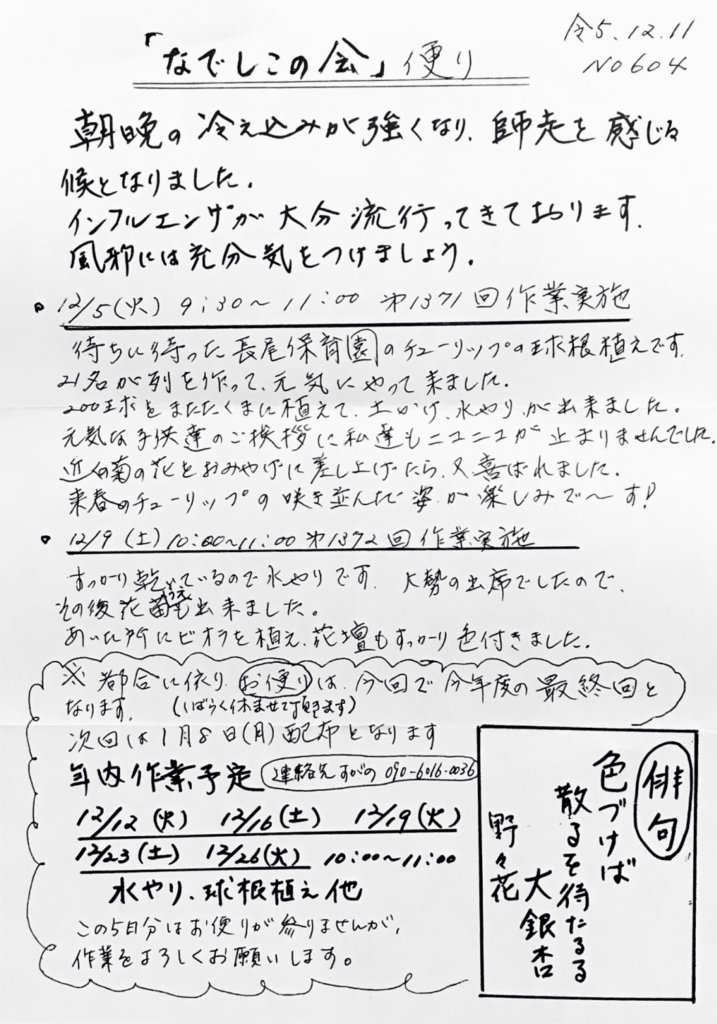 令5.12.11
NO604
「なでしこの会」便り
朝晩の冷え込みが強くなり、師走を感じる
候となりました。
インフルエンザが大分流行ってきております。
風邪には充分気をつけましょう。
12/5(火) 9:30〜11:00 第1371回作業実施
待ちに待った長尾保育園のチューリップの球根植えです。
21名が列を作って、元気にやって来ました。
200球をまたたくまに植えて、土かけ、水やり、が出来ました。
元気な子供達のご挨拶に私達もニコニコが止まりませんでした。
近くの菊の花をおみやげに差し上げたら、又喜ばれました。
来春のチューリップの咲き並んだ姿が楽しみで〜す!
12/9(土)10:00〜11:00第1372回作業実施
すっかり乾いているので水やりです。大勢の出席でしたので、
その後花苗うえも出来ました。
あいた所にビオラを植え、花壇もすっかり色付きました。
※都合に依り、お便りは、今回で今年度の最終回と
なります。(しばらく休ませて頂きます)
次回は1月8日(月)配布となります
年内作業予定 連絡先すがの090-6016-0036
12/12(火) 12/16(土) 12/19(火)
12/23(土) 12/26(火) 10:00〜11:00
水やり、球根植え他
この5日分はお便りが参りませんが、
作業をよろしくお願いします。
俳句
色づけば
散るを待たるる
大銀杏
野々花